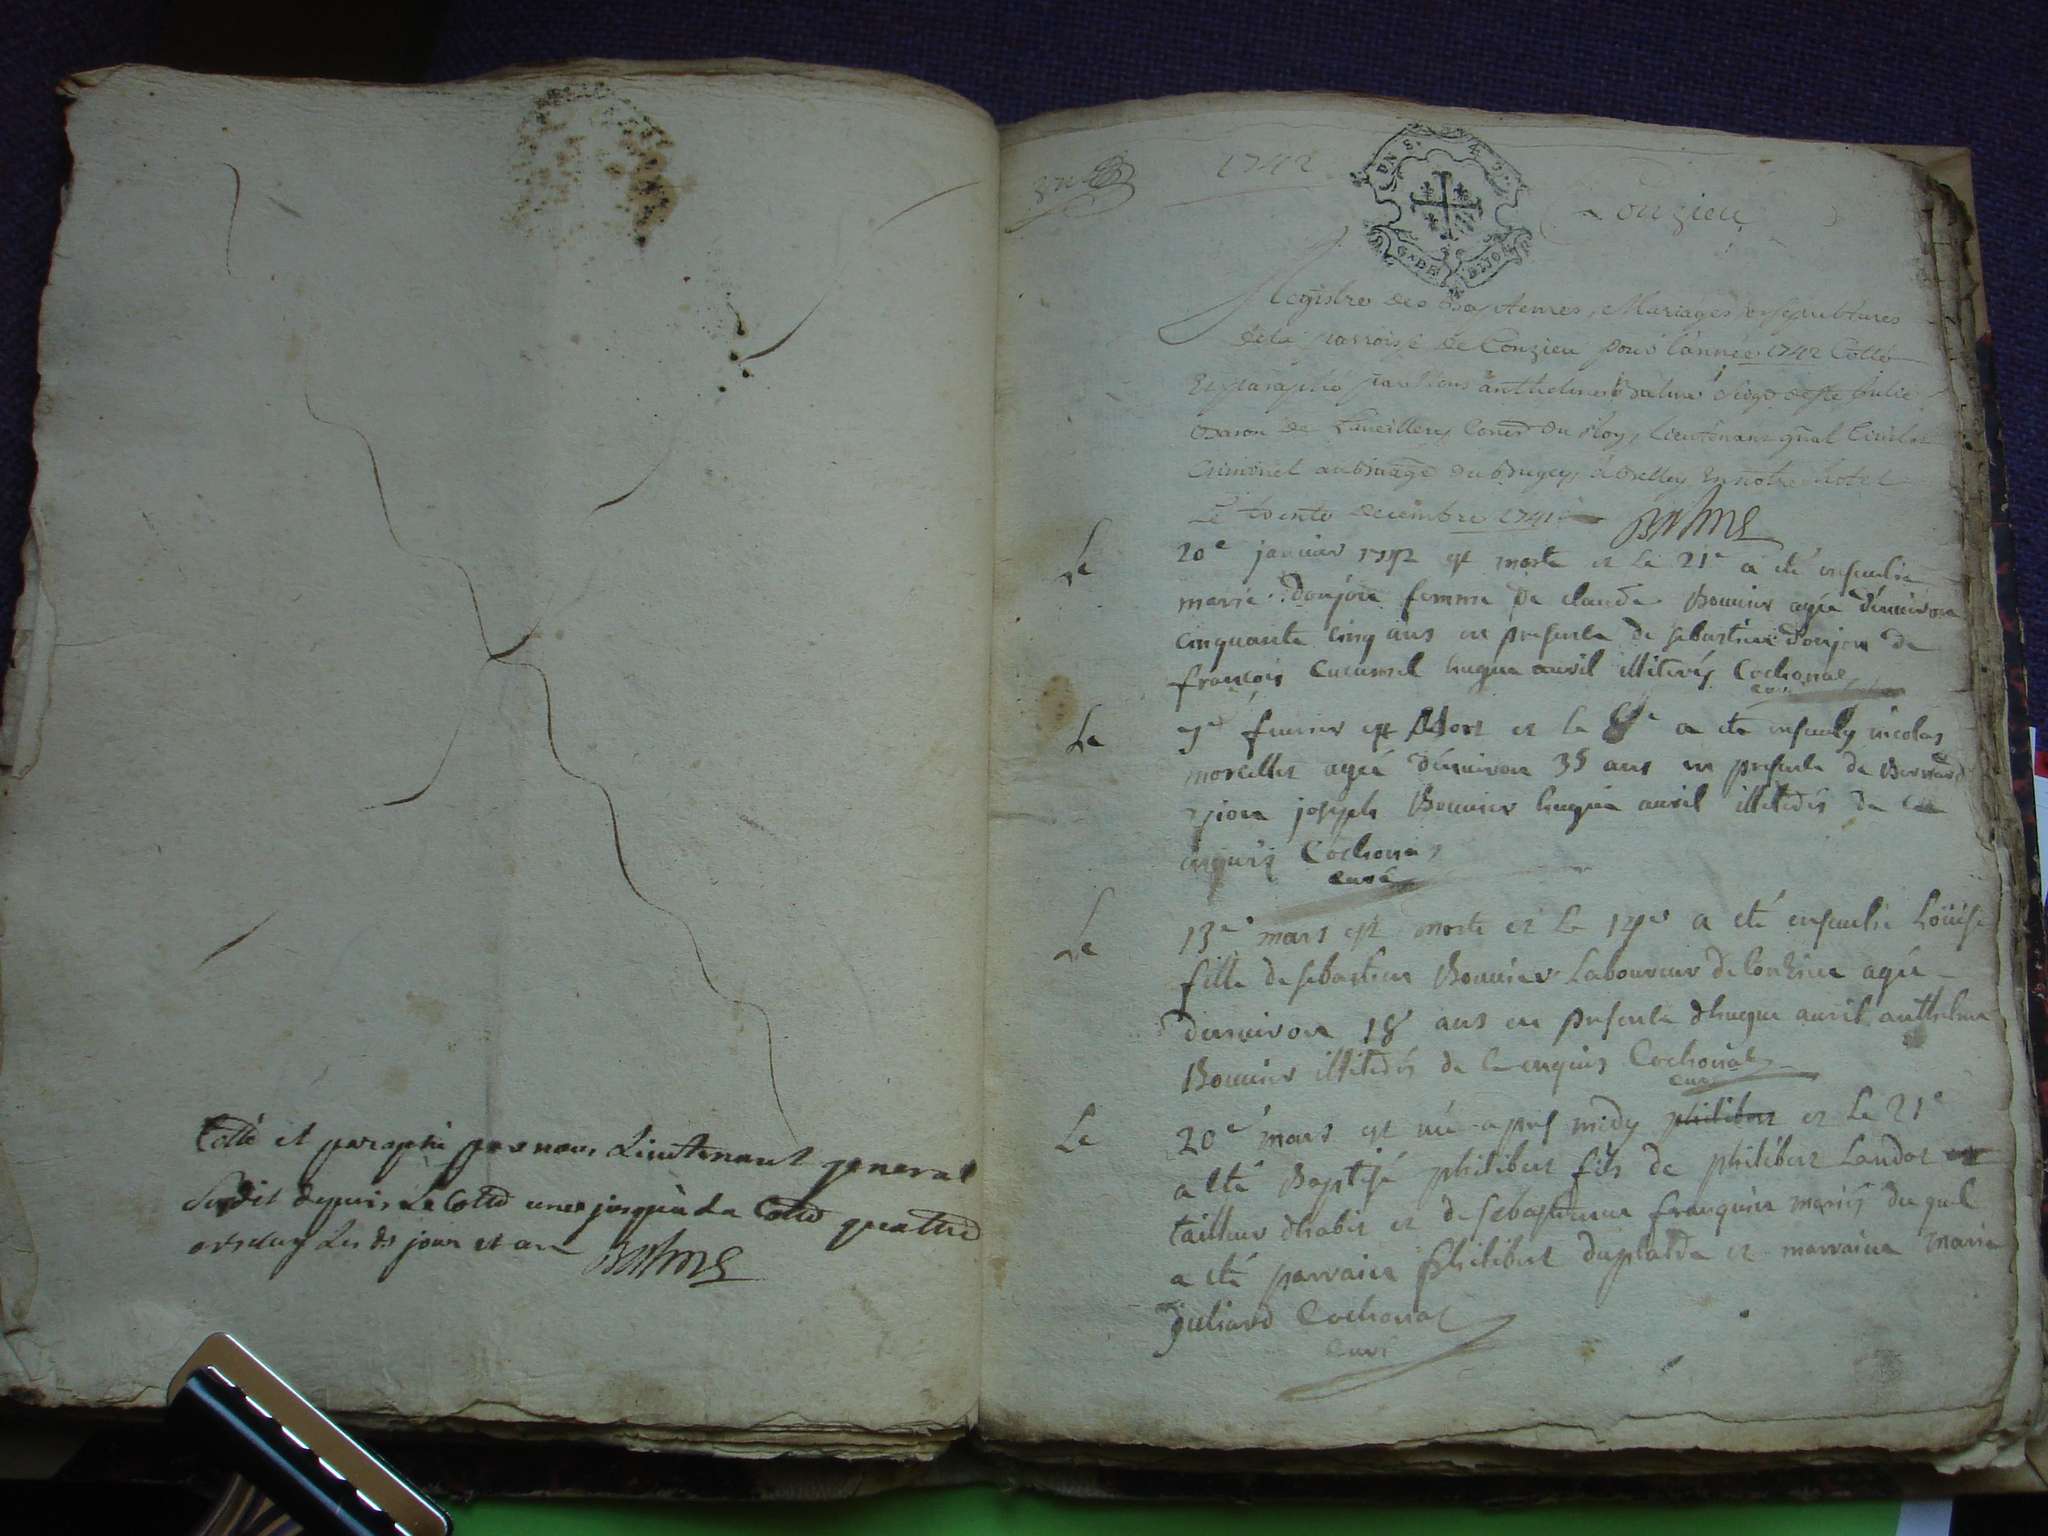 Cotté et paraphé par nous Lieutenant general
Susdit depuis La Cotte une jusqu'a La Cotte quattre
Les ds jour et an Balme
1742
GnDE DIJON
Conzieu
Registre des Baptemes, Mariages et sepultures
de la parroisse de Conzieu pour l'année 1742 Cotté
Et paraphé par Nous anthelme Balme Seigr de Ste Julie
Baron de Conser du Roy, Lieutenant gnal Civil et
Criminel au Bailliage du Bugey a Belley En notre hotel
Le trente decembre 1741 Balme
Le 20e janvier 1742 est morte et Le 21e a été enseulie
marie donjou femme de claude Bouvier agée d'environ
cinquante cinq ans en presence de sebastien donjou de
françois hugue avril illiterés Cochonat
curé
Le fevrier est Mort et le a ete nicolas
agée d'environ 35 ans en presence de Bernard
joseph Bouvier hugue avril de ce
enquis Cochonat
curé
Le 13e mars est morte et Le 14e a été enseulie Loüise
fille de sebastien Bouvier Laboureur de Conzieu agée
denviron 18 ans en presence dhugue avril anthelme
Bouvier de ce enquis Cochonat
curé
Le 20e mars est né apres midy philibert et Le 21e
a eté Baptisé philibert fils de philibert Landot
tailleur dhabit et de sebastienne franquin mariés duquel
a eté parrain philibert duplatde et marraine marie
Juliand Cochonat
curé